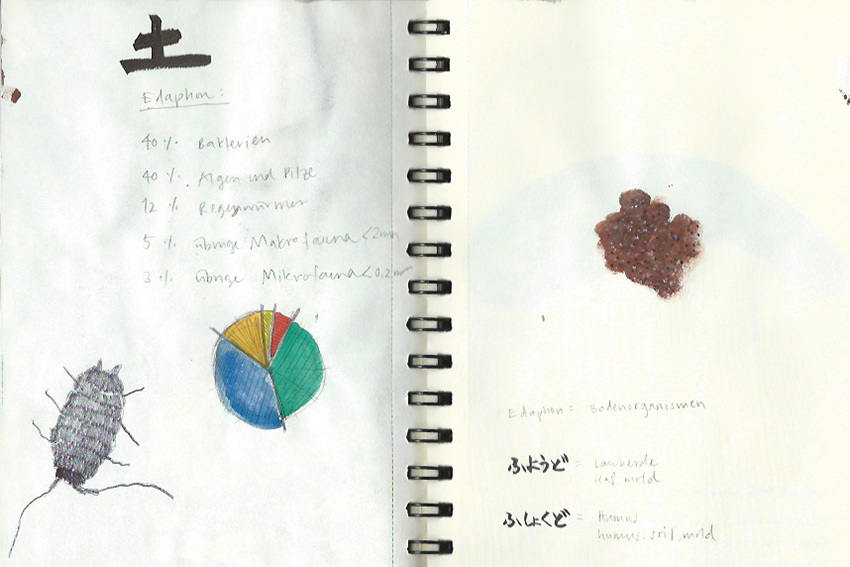 土
Edaphon:
40 % Bakterien
40 % Algen und Pilze
12 % Regenwürmer
5 % übrige Makrofauna <2mm
3 % übrige Mikrofauna <0,2mm
Edaphon = Bodenorganismen
ふようど = Lauberde
leaf mold
ふしょくど = Humus
humus. soil. mold